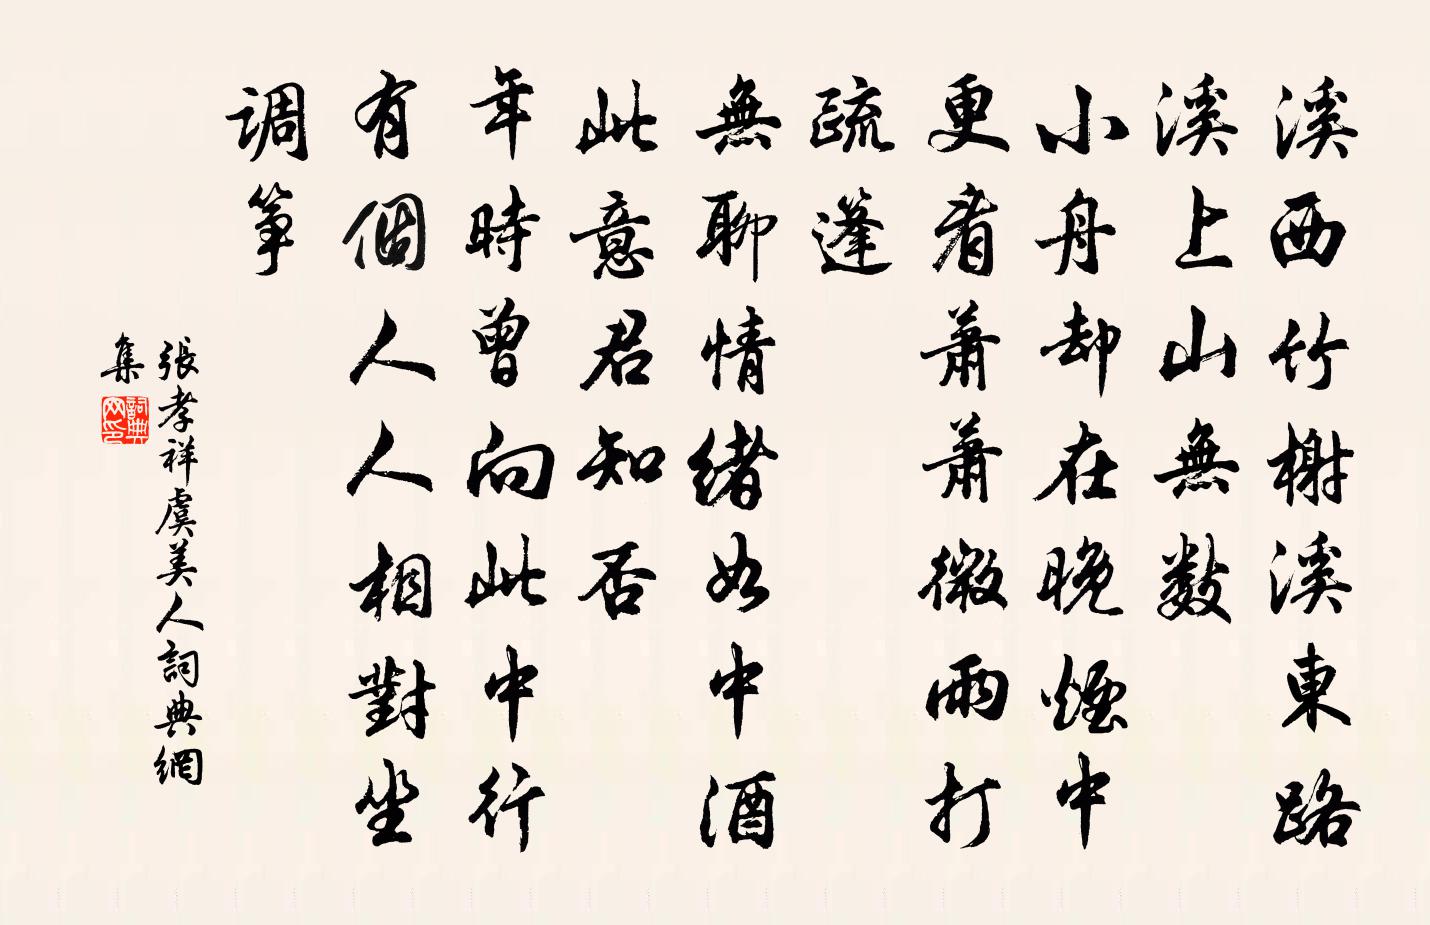 溪西竹榭溪東路
溪上山無數
小舟却在晚煙中
更看蕭蕭微雨打
疏篷
無聊情緒如中酒
此意君知否
年時曾向此中行
有個人人相對坐
调筝
張孝祥虞美人詞典網
集
詞典網印